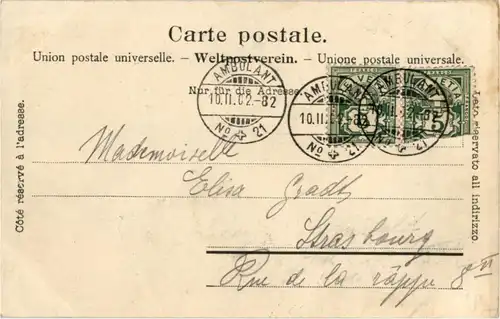 Carte postale.
Union postale universelle. – Weltpostverein. – Unione postale universale.
Nur für die Adresse.
Côté réservé à l'adresse.
Lato riservato all indirizzo.
AMBULANT
10.II.02.-82
No 21
AMBULANT
10.II.0
No 21
AMBULANT
No 21
FRANCO
5
Mademoiselle
Elisa Gradt
Strasbourg
Rue de la râppe 8